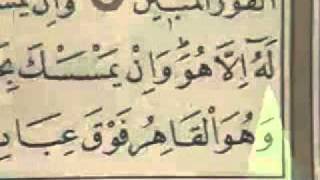 الفوز المبين وان يمس
لَهٗٓ اِلَّا هُوَ ؕ وَاِنْ يَمْسَسْكَ بِخَ
وَهُوَ الْقَاهِرُ فَوْقَ عِبَادِ